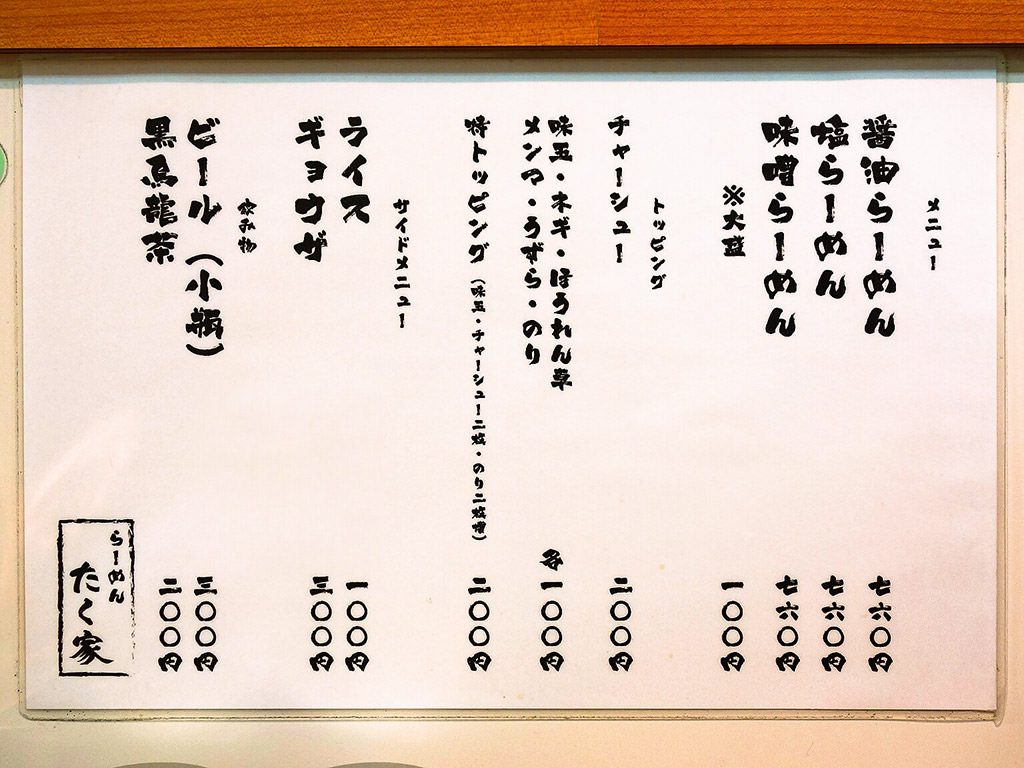 メニュー
醤油らーめん 七六〇円
塩らーめん 七六〇円
味噌らーめん 七六〇円
※大盛 一〇〇円
トッピング
チャーシュー 二〇〇円
味玉・ネギ・ほうれん草
メンマ・うずら・のり 各一〇〇円
特トッピング(味玉・チャーシュー二枚・のり二枚増) 二〇〇円
サイドメニュー
ライス 一〇〇円
ギョウザ 三〇〇円
飲み物
ビール(小瓶) 三〇〇円
黒烏龍茶 二〇〇円
らーめん
たく家